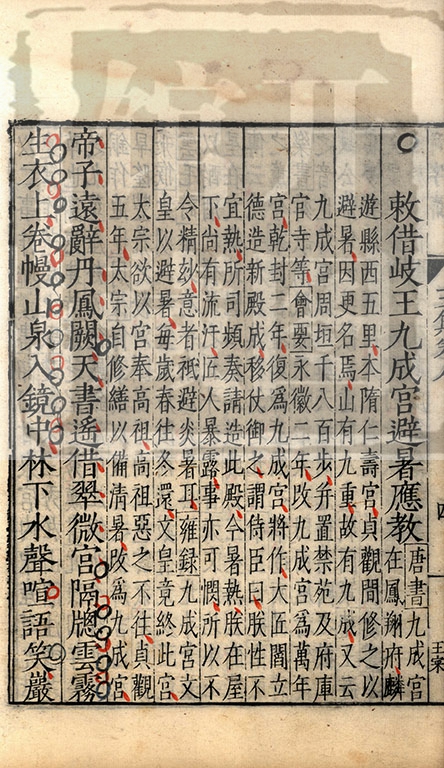 敕借岐王九成宮避暑應教
唐書九成宮
在鳳翔府麟
遊縣西五里本隋仁壽宮貞觀間修之以
避暑因更名焉山有九重故有九成又云
九成宮周垣千八百步并置禁苑及府庫
官寺等會要永徽二年改九成宮爲萬年
宮乾封二年復爲九成宮將作大匠閻立
德造新殿成移仗御之謂侍臣曰朕性不
宜熱所司頻奏請造此殿今暑熱朕在屋
下尚有流汗匠人暴露事亦可憫所以不
令精妙意者祇避炎暑耳雍録九成宮文
皇以避暑每歲春往冬還文皇竟終此宮
太宗欲以宮奉高祖高祖惡之不往貞觀
五年太宗自修繕以備清暑改爲九成宮
帝子遠辭丹鳳闕天書遙借翠微宮隔牕雲霧
生衣上卷幔山泉入鏡中林下水聲喧語笑巖